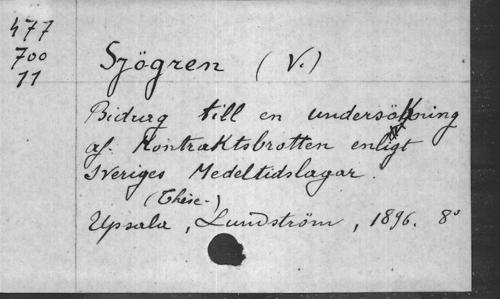 477
700
11
Sjögren (V.)
Bidrag till en undersökning
af Kontraktsbrotten enligt
Sveriges Medeltidslagar.
(Thèse.)
Upsala, Lundström, 1896. 8°